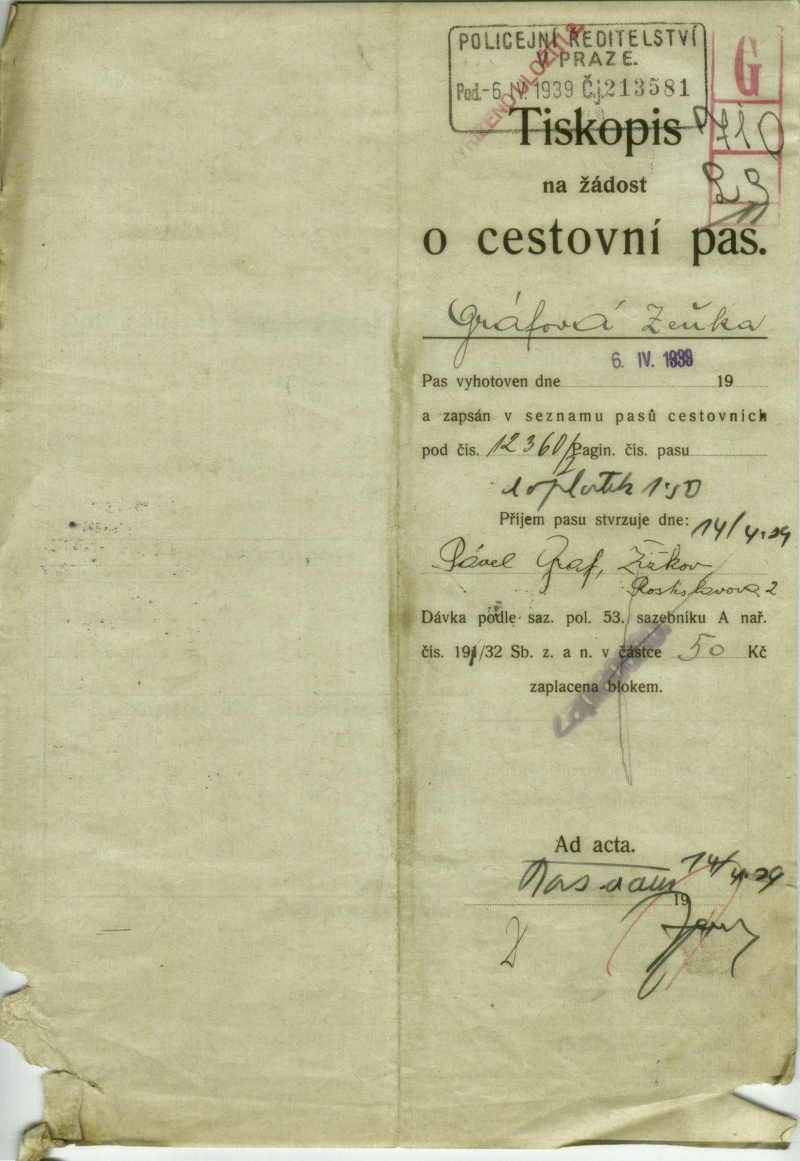 POLICEJNÍ ŘEDITELSTVÍ
V PRAZE.
Pod. -6. IV. 1939 Č.j. 213581
G
710
23
11
Tiskopis
na žádost
o cestovní pas.
Gráfová Zeňka
6. IV. 1939
Pas vyhotoven dne 19
a zapsán v seznamu pasů cestovních
pod čís. 12360/ Pagin. čís. pasu
doplatek 1·50
Příjem pasu stvrzuje dne: 14/4.39
Pavel Graf, Žižkov
Rostislavova 2
Dávka podle saz. pol. 53. sazebníku A nař.
čís. 191/32 Sb. z. a n. v částce 50 Kč
zaplacena blokem.
Ad acta.
Pas vydán 14/4.39
19